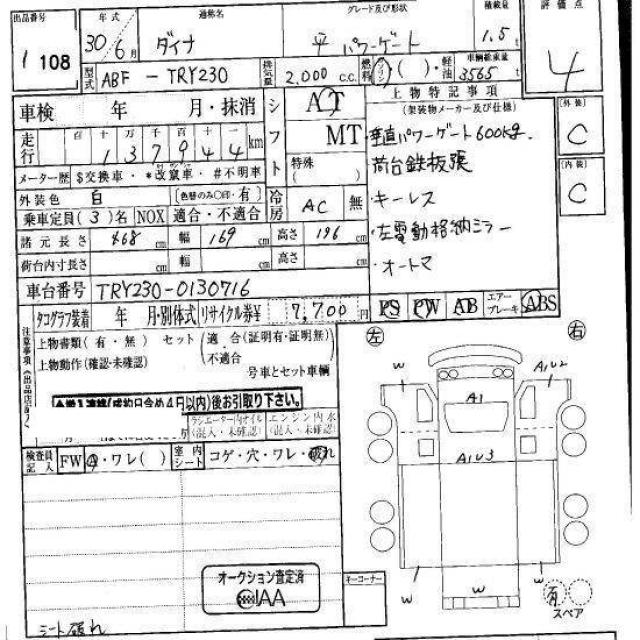 出品番号 年式 通称名 グレード及び形状 積載量 評価点
1 108 30年 6月 ダイナ 平 パワーゲート 1.5t 4
型式 ABF - TRY230 排気量 2,000 C.C. 燃料 ガソリン ( )・軽油 車輌総重量 3565 t
車検 年 月・抹消 シフト AT 上物特記事項
(架装物メーカー及び仕様) 外装 C
走行 百 十 万 千 百 十 一
137944 km MT 垂直パワーゲート600kg.
特殊 ( ) 荷台鉄板張 内装 C
メーター歴 $交換車・*改竄車・#不明車
外装色 白 [色替のみ○印・有] 冷房 AC 無 ・キーレス
乗車定員(3)名 NOX 適合・不適合 ・左電動格納ミラー
諸元長さ 468 cm 幅 169 cm 高さ 196 cm
荷台内寸長さ cm 幅 cm 高さ cm ・オートマ
車台番号 TRY230-0130716
タコグラフ装着 年 月・別体式 リサイクル券¥ 7,700円 PS PW AB エアーブレーキ ABS
注意事項(出品店記入)
上物書類(有・無) セット(適合(証明有・証明無)
上物動作(確認・未確認) 不適合 号車とセット車輌
(成約日含め4日以内)後お引取り下さい。
ラジエーター内オイル(混入・未確認) エンジン内水(混入・未確認)
検査員記入 FW A・ワレ( ) 室内シート コゲ・穴・ワレ・破れ
左 右
W A1U2
A1
A1U3
W W W
有
スペア
オークション査定済
JAA
キーコーナー
シート破れ